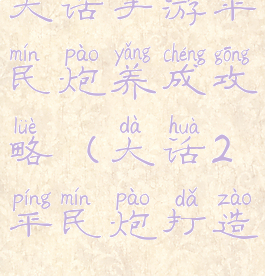 大话手游平
mín pào yǎng chéng gōng
民炮养成攻
lüè dà huà
略(大话2
píng mín pào dǎ zào
平民炮打造